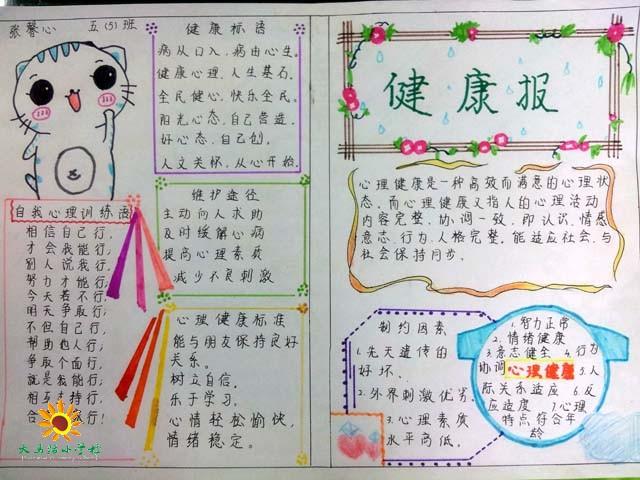 张馨心 五(5)班
健康标语
病从口入,病由心生。
健康心理,人生基石。
全民健心,快乐全民。
阳光心态,自己营造,
好心态,自己创。
人文关怀,从心开始。
健康报
自我心理训练语
相信自己行,
才会我能行;
别人说我行,
努力才能行;
今天若不行,
明天争取行;
不但自己行,
帮助他人行;
争取个面行,
就是我能行;
相互支持行,
合 行!
维护途径
主动向人求助
及时缓解心病
提高心理素质
减少不良刺激
心理健康标准
能与朋友保持良好
关系。
树立自信。
乐于学习。
心情轻松愉快,
情绪稳定。
心理健康是一种高效而满意的心理状
态。而心理健康又指人的心理活动
内容完整、协调一致,即认识、情感
意志、行为、人格完整。能适应社会,与
社会保持同步。
制约因素
1.先天遗传的
好坏、
2.外界刺激优劣,
3.心理素质
水平高低。
1.智力正常
2.情绪健康
3.意志健全 4.行为
协调 心理健康 5.人
际关系适应 6.反
应适度 7.心理
特点符合年
龄
小学校